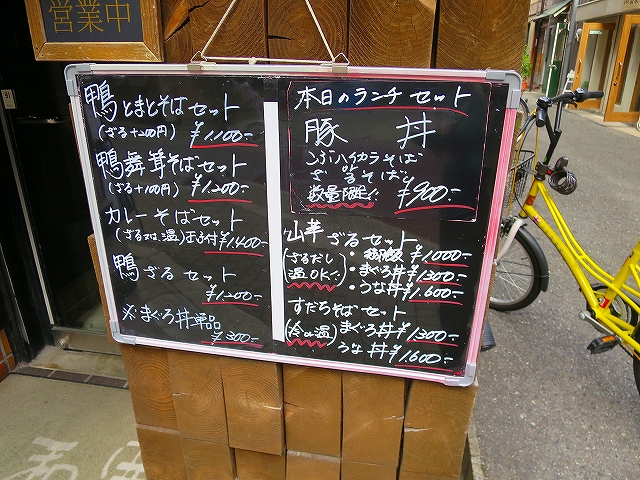 営業中
鴨とまとそばセット
(ざる+200円) ¥1,100-
鴨舞茸そばセット
(ざる+100円) ¥1,200-
カレーそばセット
(ざる又は温)玉子付¥1,400-
鴨ざるセット
¥1,200-
※まぐろ丼単品
¥300-
本日のランチセット
豚丼
ぶハイカラそば
ざるそば
数量限定!! ¥900-
山芋ざるセット
(ざるだし
温OK!)
¥1,000-
・まぐろ丼¥1,300-
・うな丼¥1,600-
すだちそばセット
(冷or温)まぐろ丼¥1,300-
うな丼¥1,600-